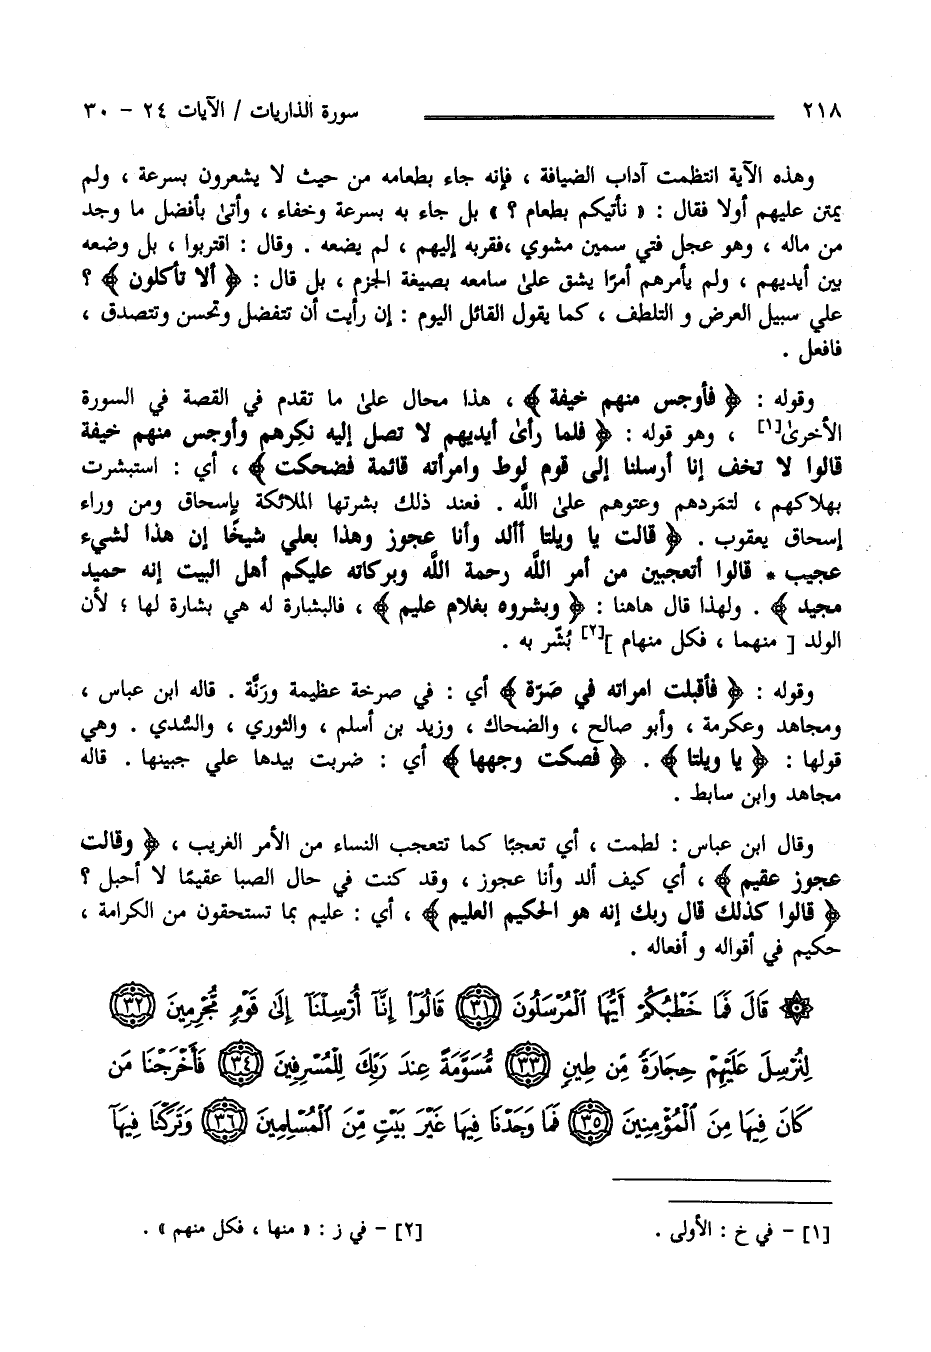 ٢١٨ سورة الذاريات / الآيات ٢٤ – ٣٠
وهذه الآية انتظمت آداب الضيافة ، فإنه جاء بطعامه من حيث لا يشعرون بسرعة ، ولم
يمتن عليهم أولا فقال : « نأتيكم بطعام ؟ » بل جاء به بسرعة وخفاء ، وأتىٰ بأفضل ما وجد
من ماله ، وهو عجل فتي سمين مشوي ،فقربه إليهم ، لم يضعه . وقال : اقتربوا ، بل وضعه
بين أيديهم ، ولم يأمرهم أمرًا يشق علىٰ سامعه بصيغة الجزم ، بل قال : ﴿ ألا تأكلون ﴾ ؟
علي سبيل العرض و التلطف ، كما يقول القائل اليوم : إن رأيت أن تتفضل وتحسن وتتصدق ،
فافعل .
وقوله : ﴿ فأوجس منهم خيفة ﴾ ، هذا محال علىٰ ما تقدم في القصة في السورة
الأخرىٰ[١] ، وهو قوله : ﴿ فلما رأىٰ أيديهم لا تصل إليه نكِرهم وأوجس منهم خيفة
قالوا لا تخف إنا أرسلنا إلى قوم لوط وامرأته قائمة فضحكت ﴾ ، أي : استبشرت
بهلاكهم ، لتمَردهم وعتوهم علىٰ اللَّه . فعند ذلك بشرتها الملائكة بإسحاق ومن وراء
إسحاق يعقوب . ﴿ قالت يا ويلتا أألد وأنا عجوز وهذا بعلي شيخًا إن هذا لشيء
عجيب * قالوا أتعجبين من أمر اللَّه رحمة اللَّه وبركاته عليكم أهل البيت إنه حميد
مجيد ﴾ . ولهذا قال هاهنا : ﴿ وبشروه بغلام عليم ﴾ ، فالبشارة له هي بشارة لها ؛ لأن
الولد [ منهما ، فكل منهام ][٢] بُشّر به .
وقوله : ﴿ فأقبلت امراته في صَرّة ﴾ أي : في صرخة عظيمة ورَنَّة . قاله ابن عباس ،
ومجاهد وعكرمة ، وأبو صالح ، والضحاك ، وزيد بن أسلم ، والثوري ، والسُّدي . وهي
قولها : ﴿ يا ويلتا ﴾ . ﴿ فصكت وجهها ﴾ أي : ضربت بيدها علي جبينها . قاله
مجاهد وابن سابط .
وقال ابن عباس : لطمت ، أي تعجبًا كما تتعجب النساء من الأمر الغريب ، ﴿ وقالت
عجوز عقيم ﴾ ، أي كيف ألد وأنا عجوز ، وقد كنت في حال الصبا عقيمًا لا أحبل ؟
﴿ قالوا كذلك قال ربك إنه هو الحكيم العليم ﴾ ، أي : عليم بما تستحقون من الكرامة ،
حكيم في أقواله و أفعاله .
۞ قَالَ فَمَا خَطْبُكُمْ أَيُّهَا ٱلْمُرْسَلُونَ ٣١ قَالُوٓا۟ إِنَّآ أُرْسِلْنَآ إِلَىٰ قَوْمٍ مُّجْرِمِينَ ٣٢
لِنُرْسِلَ عَلَيْهِمْ حِجَارَةً مِّن طِينٍ ٣٣ مُّسَوَّمَةً عِندَ رَبِّكَ لِلْمُسْرِفِينَ ٣٤ فَأَخْرَجْنَا مَن
كَانَ فِيهَا مِنَ ٱلْمُؤْمِنِينَ ٣٥ فَمَا وَجَدْنَا فِيهَا غَيْرَ بَيْتٍ مِّنَ ٱلْمُسْلِمِينَ ٣٦ وَتَرَكْنَا فِيهَآ
[١] – في خ : الأولى . [٢] – في ز : « منها ، فكل منهم » .